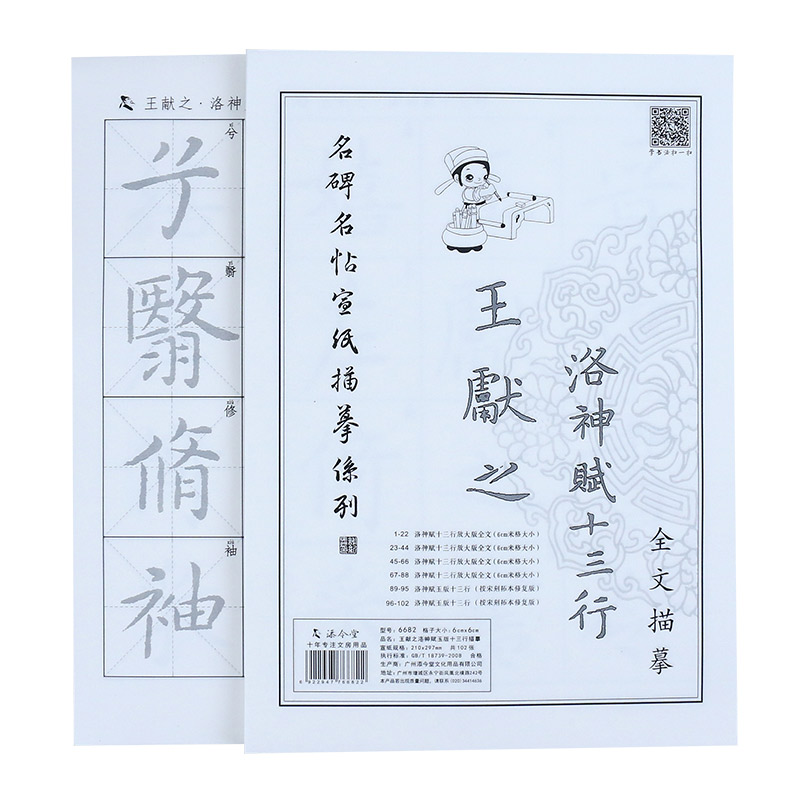 王献之·洛神
兮
翳
修
袖
兮
翳
脩
袖
学书法扫一扫
名碑名帖宣纸描摹係列
王獻之
洛神賦十三行
全文描摹
1-22 洛神赋十三行放大版全文(6cm米格大小)
23-44 洛神赋十三行放大版全文(6cm米格大小)
45-66 洛神赋十三行放大版全文(6cm米格大小)
67-88 洛神赋十三行放大版全文(6cm米格大小)
89-95 洛神赋玉版十三行(按宋刻拓本修复版)
96-102 洛神赋玉版十三行(按宋刻拓本修复版)
添今堂
十年专注文房用品
6922947766822
型号:6682 格子大小:6cmx6cm
品名:王献之洛神赋玉版十三行描摹
宣纸规格:210x297mm 共102张
执行标准:GB/T 18739-2008 合格
生产商:广州添今堂文化用品有限公司
地址:广州市增城区永宁街凤凰北横路242号
本产品若出现质量问题,请联系(020)34414636